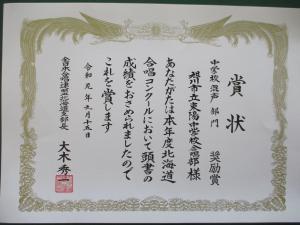 賞状
奨励賞
中学校 混声 部門
旭川市立東陽中学校合唱部 様
あなたがたは本年度北海道
合唱コンクールにおいて頭書の
成績をおさめられましたので
これを賞します
令和元年九月十五日
全日本合唱連盟北海道支部長
大木秀一